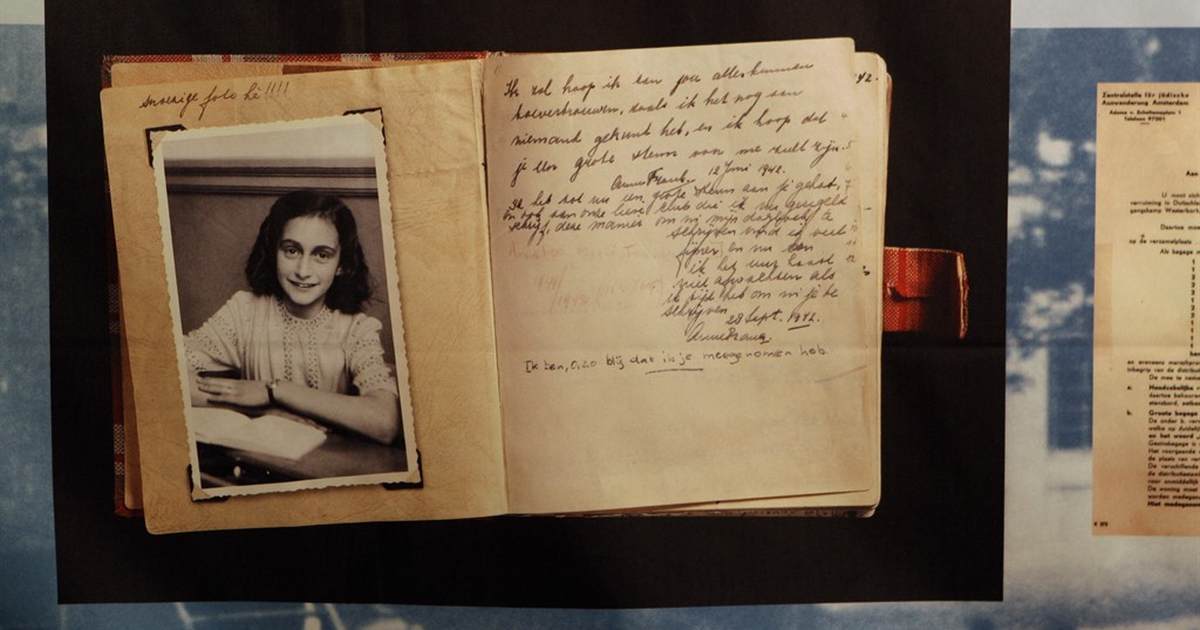 snoezige foto hè!!!!
Ik zal hoop ik aan jou alles kunnen
toevertrouwen, zoals ik het nog aan
niemand gekund heb, en ik hoop dat
je een grote steun van me zult zijn.
Anne Frank. 12 Juni 1942.
Ik heb tot nu een grote steun aan je gehad,
en ook aan onze lieve club die ik nu geregeld
schrijf, deze manier om in mijn dagboek te
schrijven vind ik veel
fijner en nu kan
ik het uur haast
niet afwachten als
ik tijd heb om in je te
schrijven
28 Sept. 1942.
Anne Frank.
Ik ben, O, zo blij dat ik je meegenomen heb.
42.
Zentralstelle für jüdische
Auswanderung Amsterdam
Adama v. Scheltemaplein 1
Telefoon 97001
Aan
U moet zich
verruiming in Duitschla
gangskamp Westerbork
Daartoe moe
op de verzamelplaats
Als bagage m
en eveneens
inbegrip van de distribut
De mee te nemen
a.
b. Groote bagage
en het woord
Het voorgaande
de plaats van
De verschillende
de distributie
voor onmiddell
De woning moet
worden
Niet medegenomen